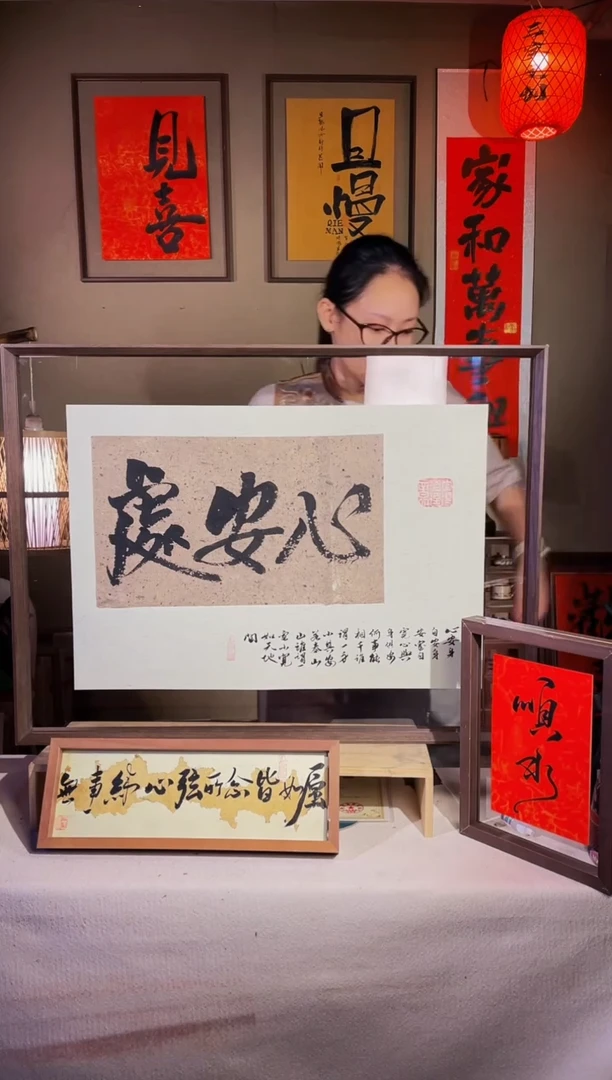 見喜
且慢
QIE
NAN
家和萬事
心安處
心安身
自安身
安室自
寬心與
身俱安
何事能
相干誰
謂一身
小其安
若泰
山誰謂一
室小寬
如天地
間
無事絆心弦所念皆如愿
順水